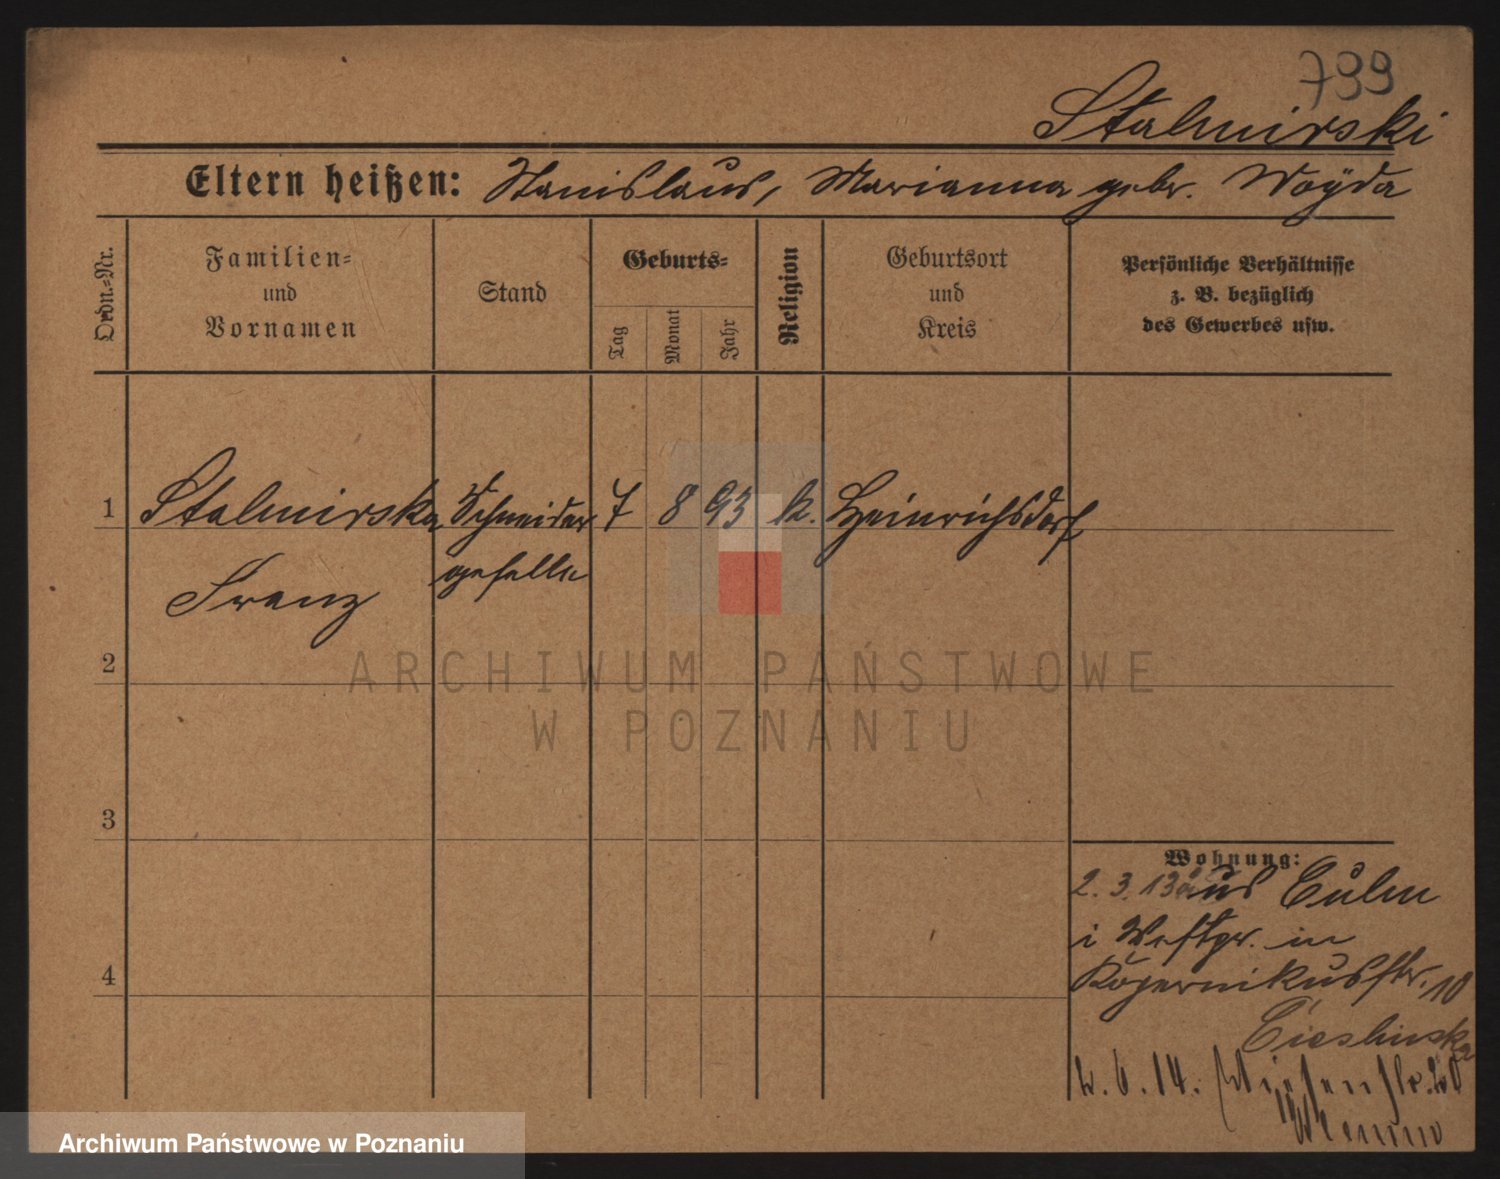 799
Stalmirski
Eltern heißen: Stanislaus, Marianna gebr. Woÿda
Ordn.-Nr.
Familien-
und
Vornamen
Stand
Geburts-
Tag
Monat
Jahr
Religion
Geburtsort
und
Kreis
Persönliche Verhältnisse
z. B. bezüglich
des Gewerbes usw.
1 Stalmirska Schneider 7 8 93 k. Heinrichsdorf
geselle
Franz
2
3
4
Wohnung:
2. 3. 13 aus Culm
i Westpr. in
Kopernikusstr. 10
Cieslinska
2. 6. 14. Wiesenstr. 20
ARCHIWUM PAŃSTWOWE
W POZNANIU
Archiwum Państwowe w Poznaniu